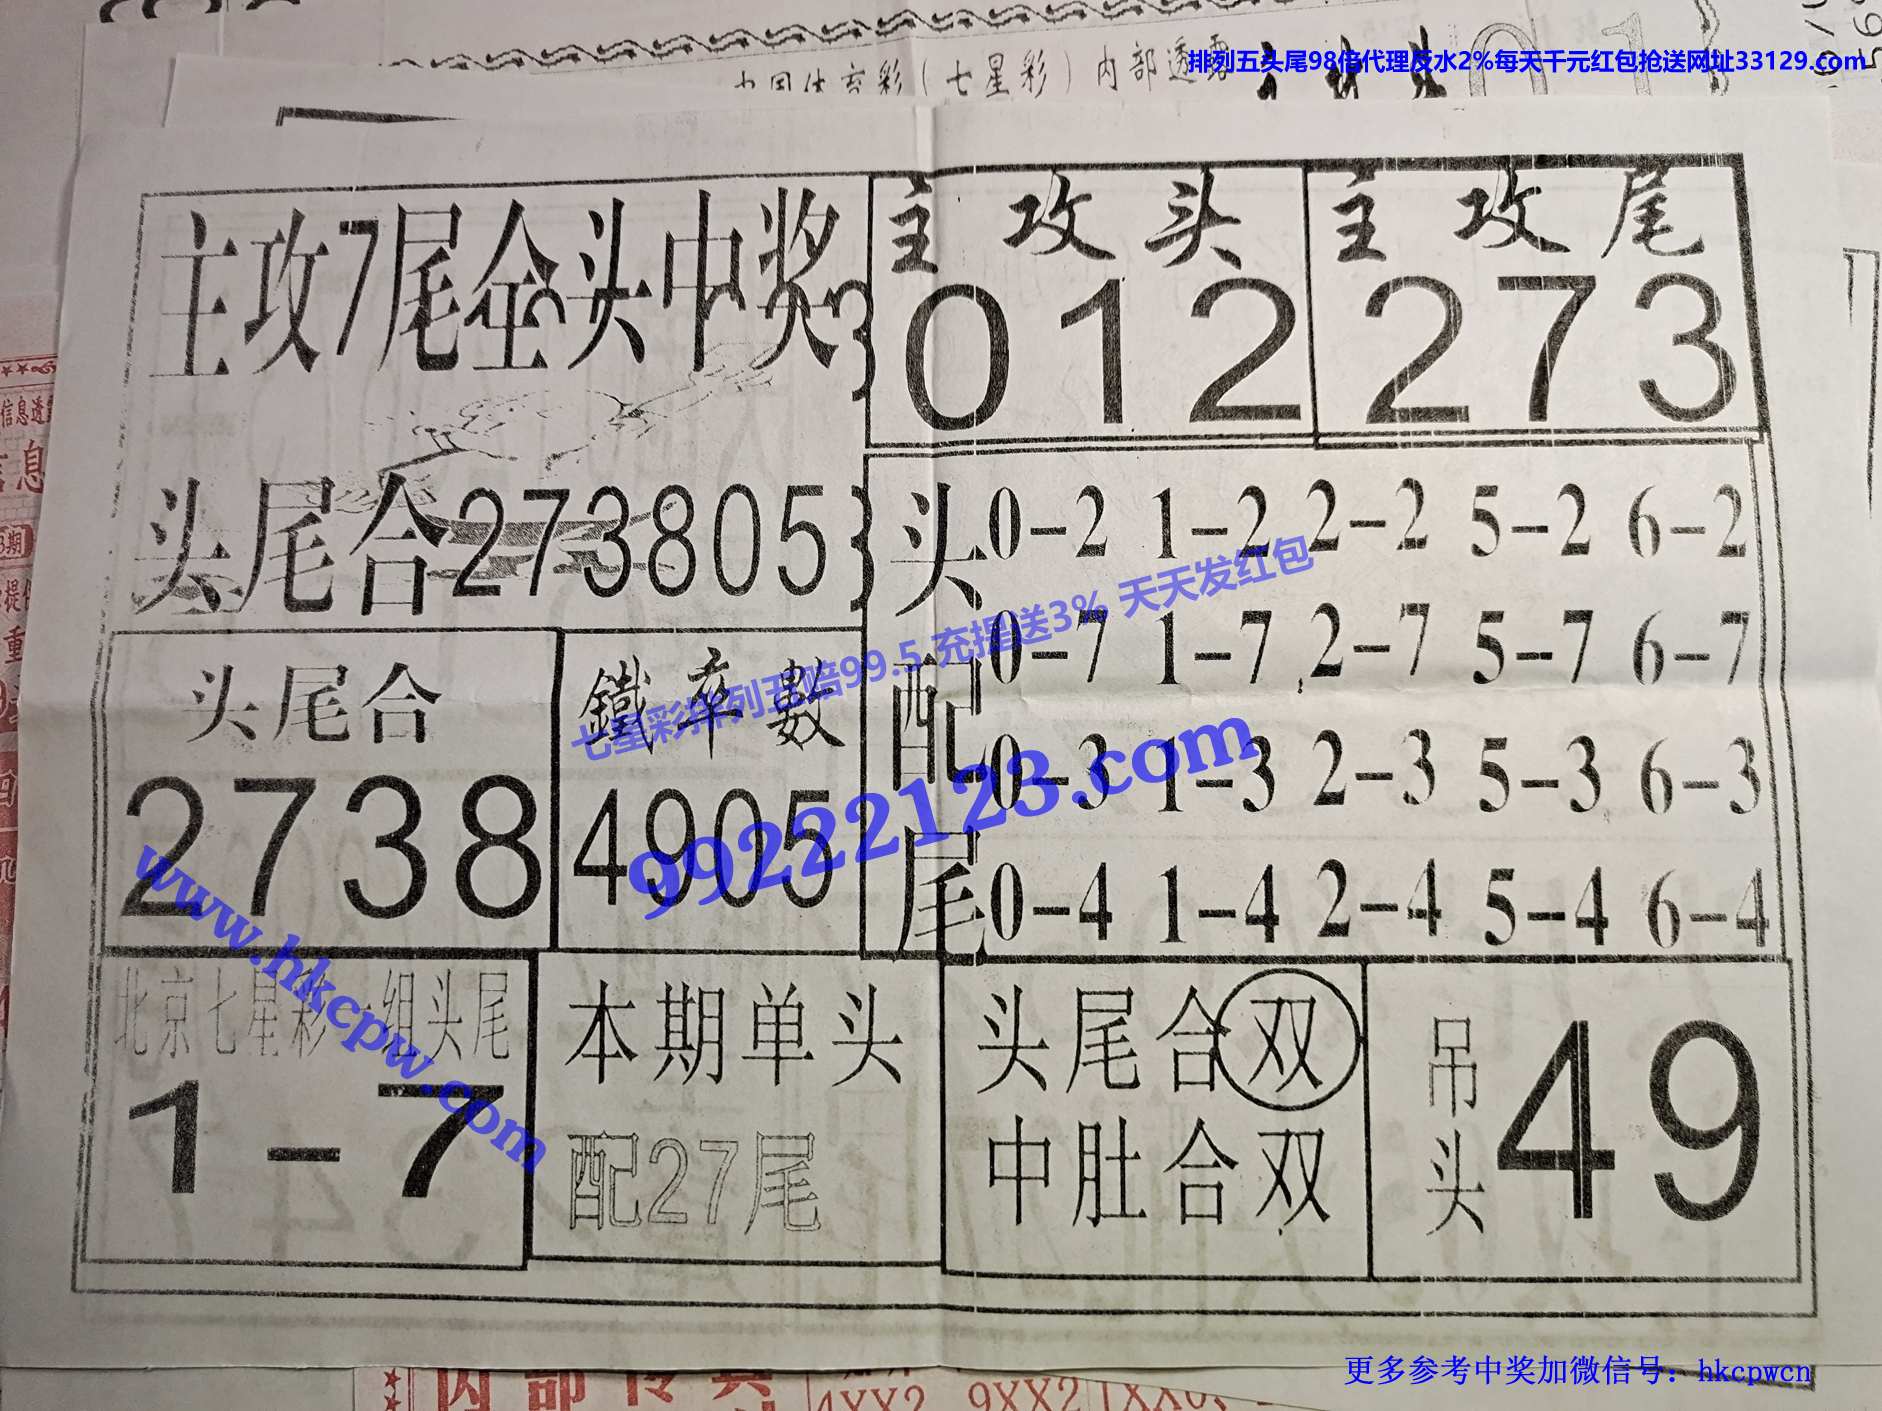 排列五头尾98倍代理反水2%每天千元红包抢送网址33129.com
中国体育彩（七星彩）内部透露
主攻7尾全头中奖
主攻头
012
主攻尾
273
头尾合273805
头配尾
0-2 1-2 2-2 5-2 6-2
0-7 1-7 2-7 5-7 6-7
0-3 1-3 2-3 5-3 6-3
0-4 1-4 2-4 5-4 6-4
头尾合
2738
鐵率數
4905
七星彩排列五赔99.5 充提送3% 天天发红包
99222123.com
www.hkcpw.com
北京七星彩一组头尾
1-7
本期单头
配27尾
头尾合双
中肚合双
吊头
49
信息透
息
期
重
内部传真
4XX2 9XX2 1XX0
更多参考中奖加微信号：hkcpwcn